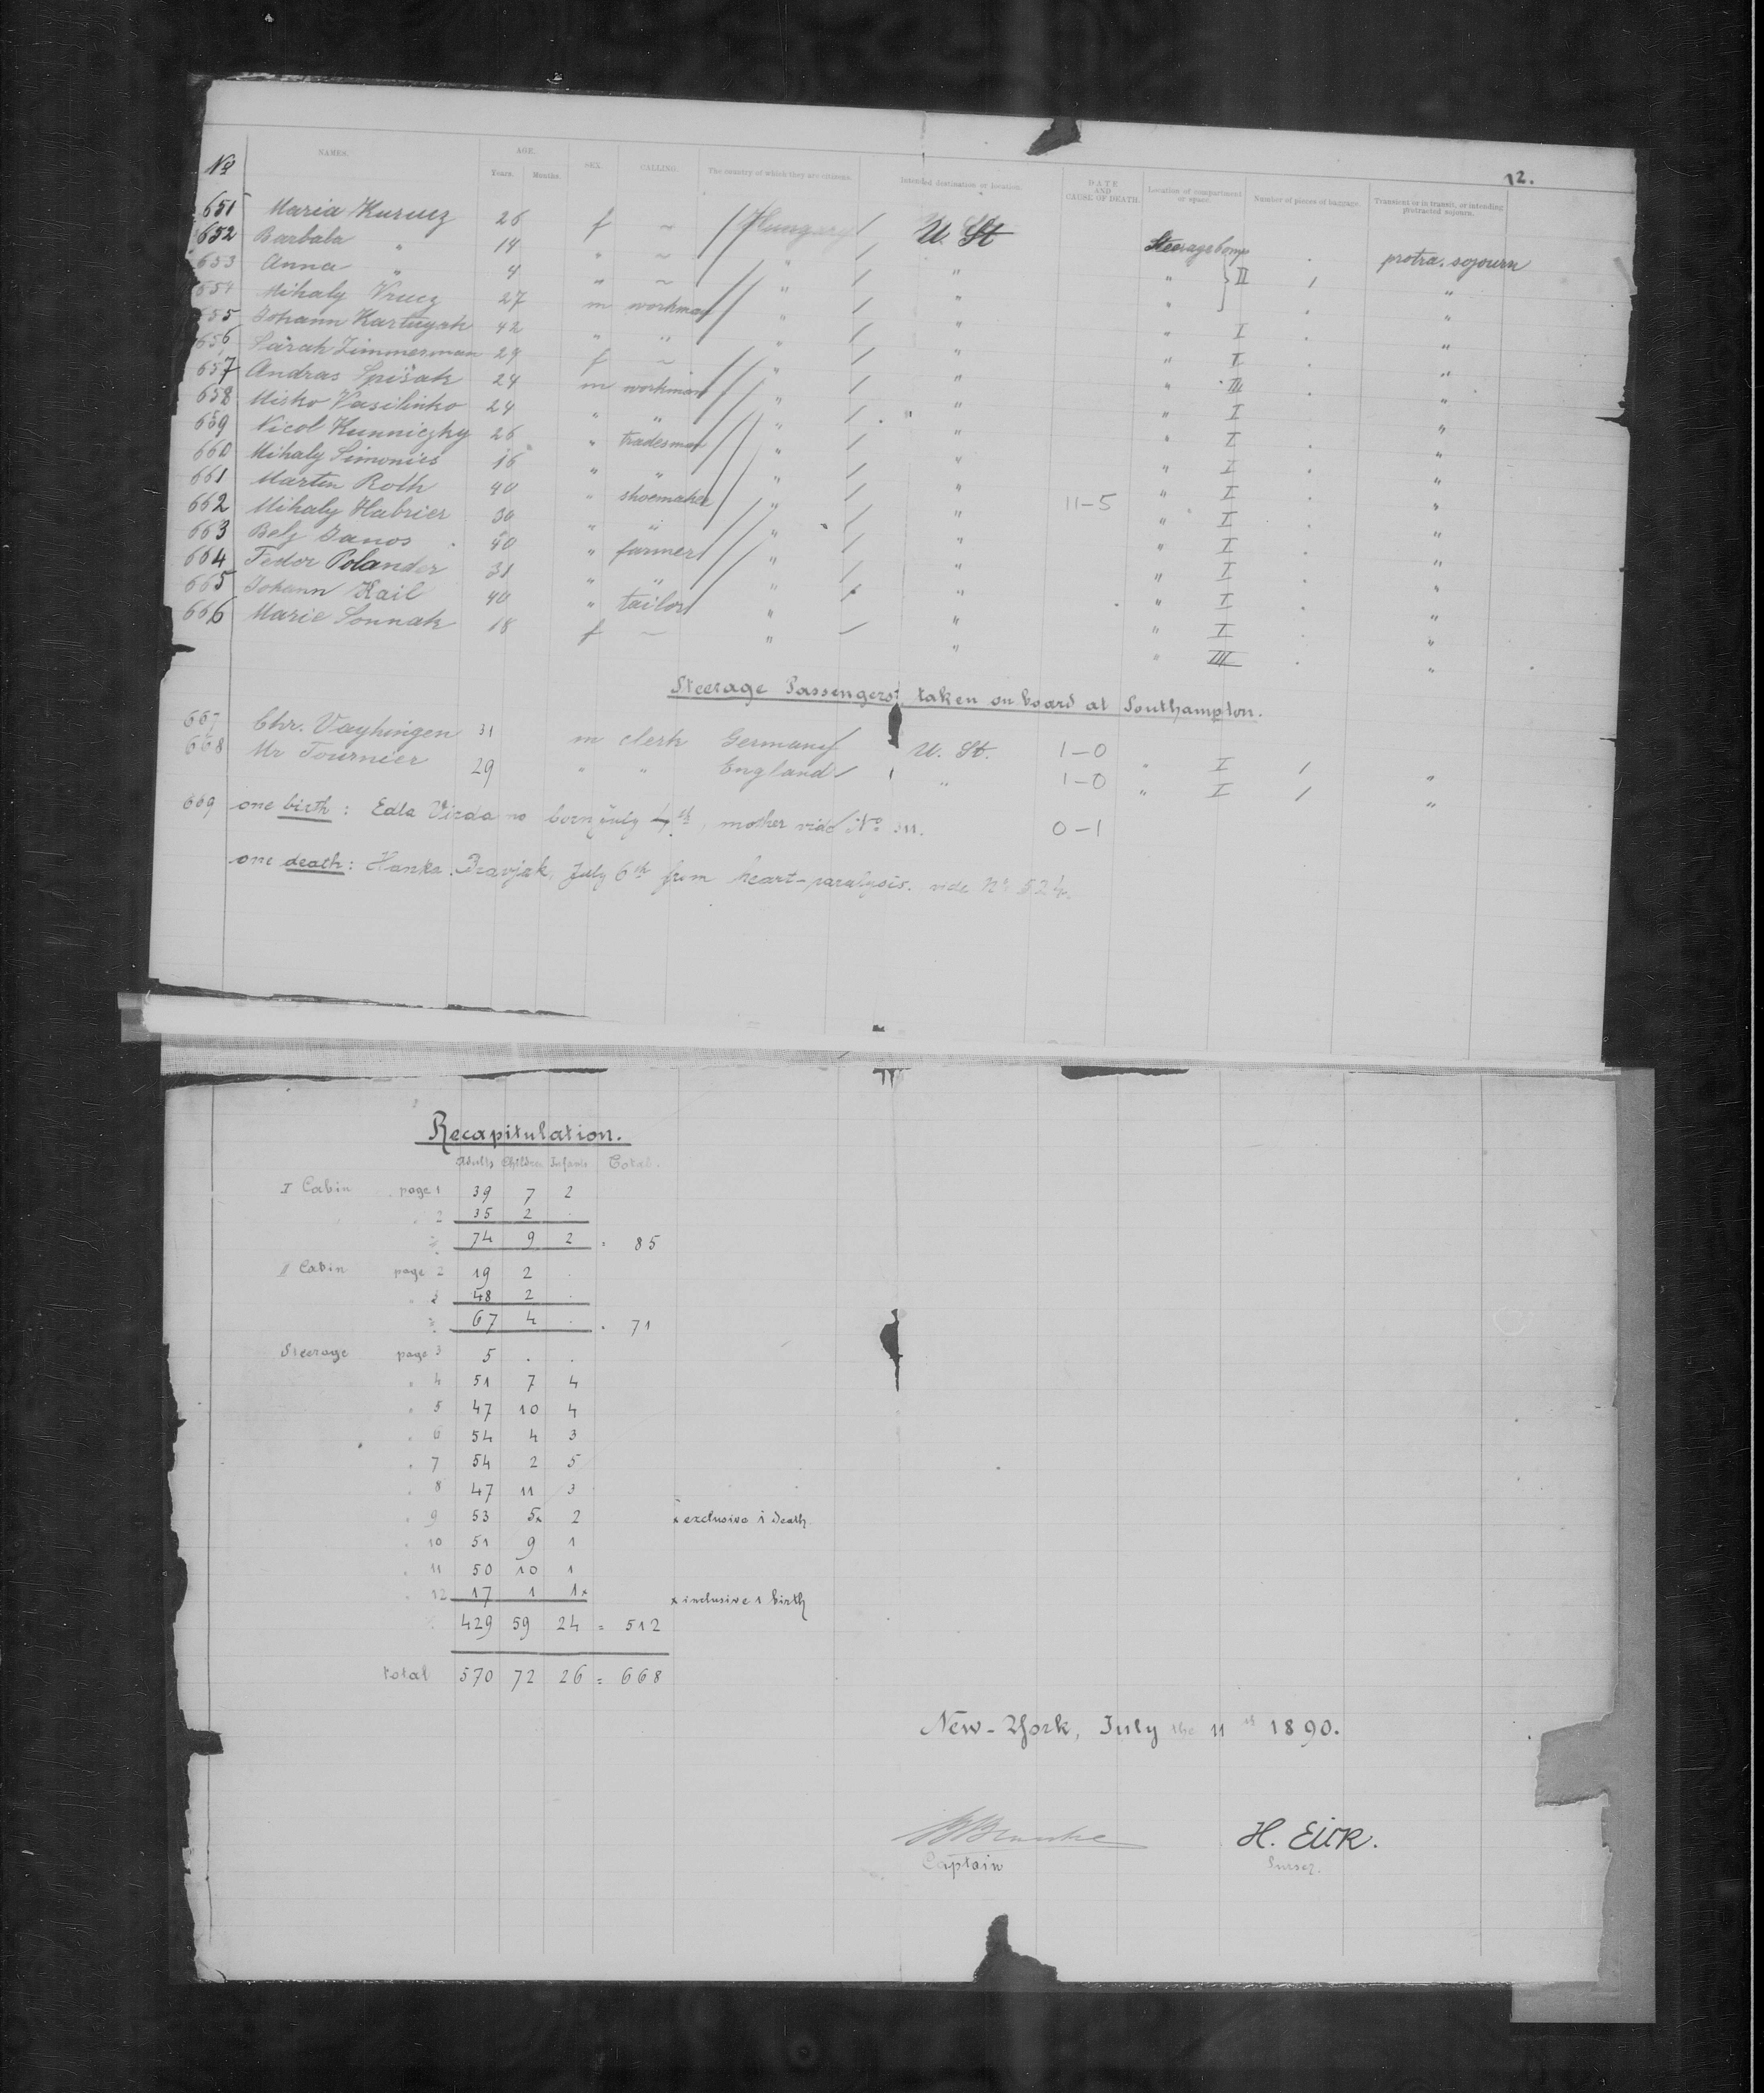 12.
No NAMES. AGE. Years. Months. SEX. CALLING. The country of which they are citizens. Intended destination or location. DATE AND CAUSE OF DEATH. Location of compartment or space. Number of pieces of baggage. Transient or in transit, or intending protracted sojourn.
651 Maria Kurucz 26 f ~ Hungary U. St Steerage Comp protra. sojourn
652 Barbala " 14 " ~ " " " } II 1 "
653 Anna " 4 " ~ " " " "
654 Mihaly Vrucz 27 m workman " " " I "
655 Johann Kartuyak 42 " " " " " I "
656 Sarah Zimmerman 29 f ~ " " " III "
657 Andras Spišak 24 m workman " " " I "
658 Misko Vasilinko 24 " " " " " I "
659 Nicol Kunniczky 26 " tradesman " " " I "
660 Mihaly Simonics 16 " " " " " I "
661 Martin Roth 40 " shoemaker " " 11-5 " I "
662 Mihaly Habrier 30 " " " " " I "
663 Belz Janos 40 " farmer " " " I "
664 Fedor Polander 31 " " " " " I "
665 Johann Kail 40 " tailor " " " I "
666 Marie Sonnak 18 f ~ " " " III "
Steerage Passengers taken on board at Southampton.
667 Chr. Vayhingen 31 m clerk Germany U. St. 1-0 " I 1 "
668 Mr Tournier 29 " " England " 1-0 " I 1 "
669 one birth: Edla born July 4th, mother vide No 311. 0-1
one death: Hanka July 6th from heart-paralysis. vide No 524.
Recapitulation.
Adults Children Infants Total.
I Cabin page 1 39 7 2
" 2 35 2 .
74 9 2 = 85
II Cabin page 2 19 2 .
" 3 48 2 .
67 4 . = 71
Steerage page 3 5 . .
" 4 51 7 4
" 5 47 10 4
" 6 54 4 3
" 7 54 2 5
" 8 47 11 3
" 9 53 5x 2 x exclusive 1 death
" 10 51 9 1
" 11 50 10 1
" 12 17 1 1x x inclusive 1 birth
429 59 24 = 512
total 570 72 26 = 668
New-York, July the 11th 1890.
H. Eick.
Captain Purser.